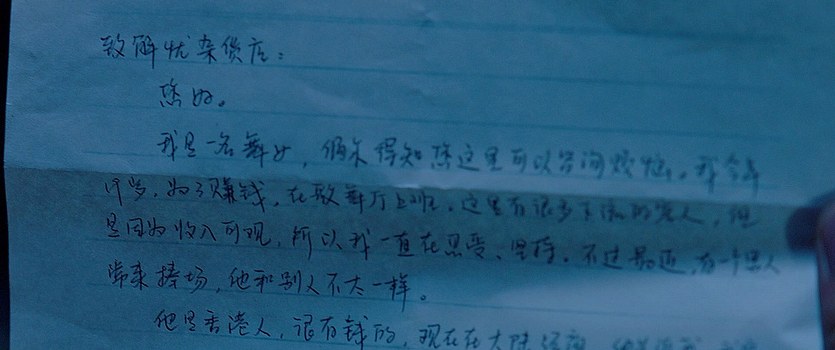 致解忧杂货店：
您好。
我是一名舞女，偶尔得知您这里可以咨询烦恼。我今年
19岁，为了赚钱，在歌舞厅上班。这里有很多下流的客人，但
是因为收入可观，所以我一直在忍受、坚持。不过最近，有一个客人
常来捧场，他和别人不太一样。
他是香港人，很有钱的，现在在大陆经商